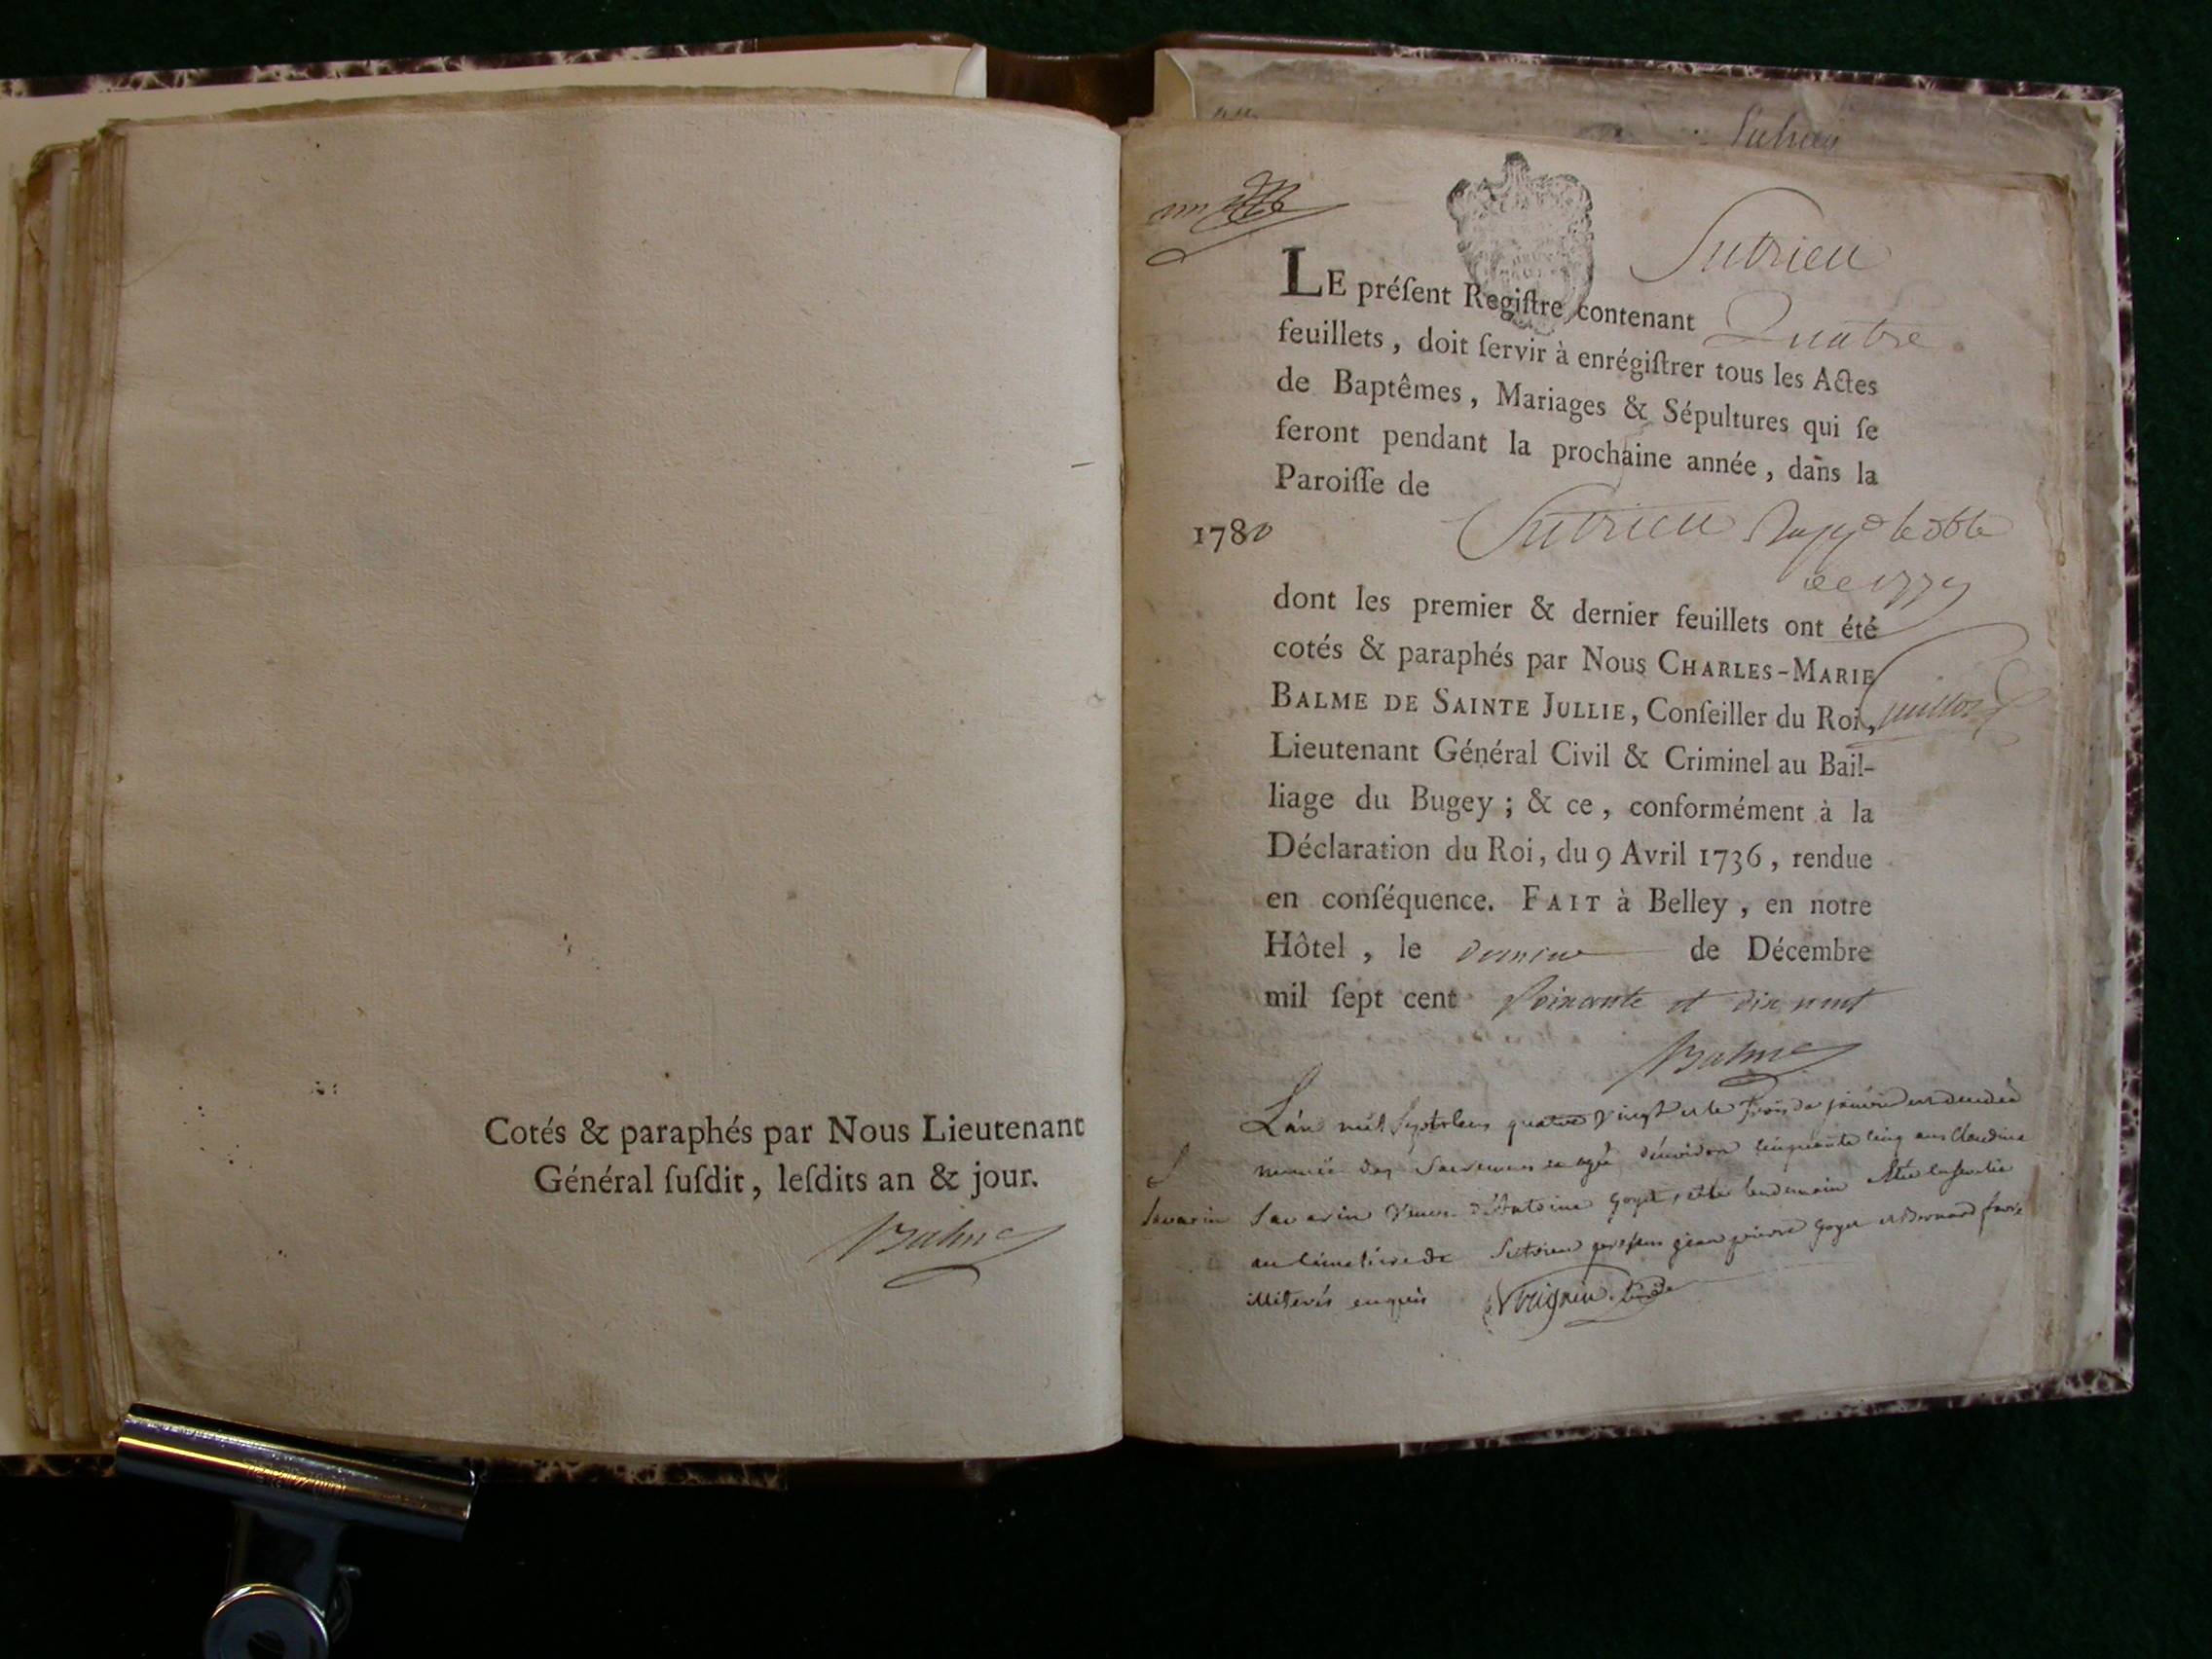 Cotés & paraphés par Nous Lieutenant
Général ſuſdit, leſdits an & jour.
Balme
Sutrieu
LE préſent Regiſtre, contenant Quatre
feuillets, doit ſervir à enrégiſtrer tous les Actes
de Baptêmes, Mariages & Sépultures qui ſe
feront pendant la prochaine année, dans la
Paroiſſe de
1780 Sutrieu
de 1779
dont les premier & dernier feuillets ont été
cotés & paraphés par Nous CHARLES-MARIE
BALME DE SAINTE JULLIE, Conſeiller du Roi,
Lieutenant Général Civil & Criminel au Bail-
liage du Bugey ; & ce, conformément à la
Déclaration du Roi, du 9 Avril 1736, rendue
en conſéquence. FAIT à Belley, en notre
Hôtel, le de Décembre
mil ſept cent Soixante et dix neuf
Balme
L'an mil Sept cens quatre vingt et le trois de janvier est decedée
munie des Sacremens et agée d'environ cinquante cinq ans Claudine
Savarin Savarin veuve d'Antoine Goyet, et le lendemain
au Cimetiere de Sutrieu presens jean pierre Goyet et Bernard
illiterés enquis